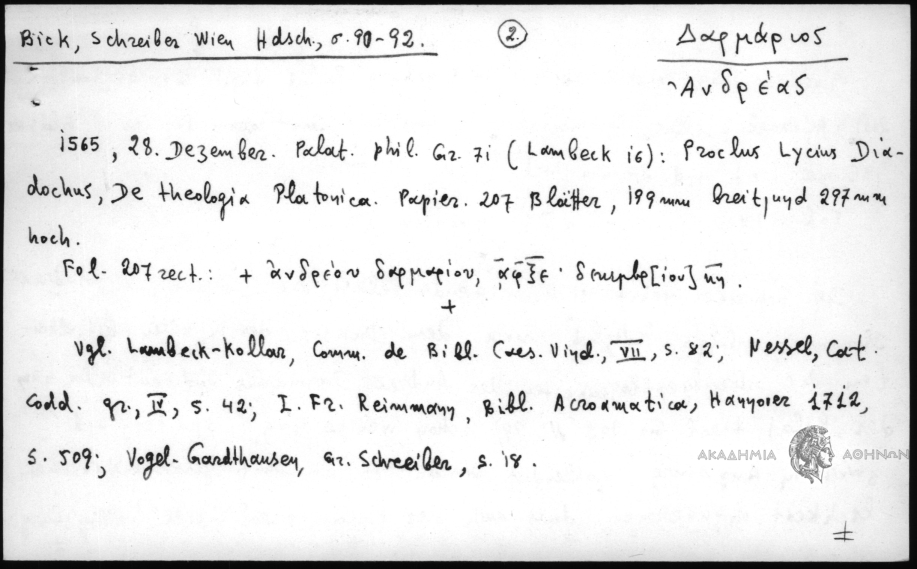 Bick, Schreiber Wien Hdsch., σ. 90-92.
2.
Δαρμάριος
Ἀνδρέας
1565, 28. Dezember. Palat. phil. Gr. 71 (Lambeck 16): Proclus Lycius Dia-
dochus, De theologia Platonica. Papier. 207 Blätter, 199 mm breit, und 297 mm
hoch.
Fol. 207 rect.: + ἀνδρέου δαρμαρίου, ͵αφξε · δεκεμβρ[ίου] κη.
+
Vgl. Lambeck-Kollar, Comm. de Bibl. Caes. Vind., VII, S. 82; Nessel, Cat.
Codd. gr., IV, S. 42; I. Fr. Reimmann, Bibl. Acroamatica, Hannover 1712,
S. 509; Vogel-Gardthausen, Gr. Schreiber, S. 18.
ΑΚΑΔΗΜΙΑ ΑΘΗΝΩΝ